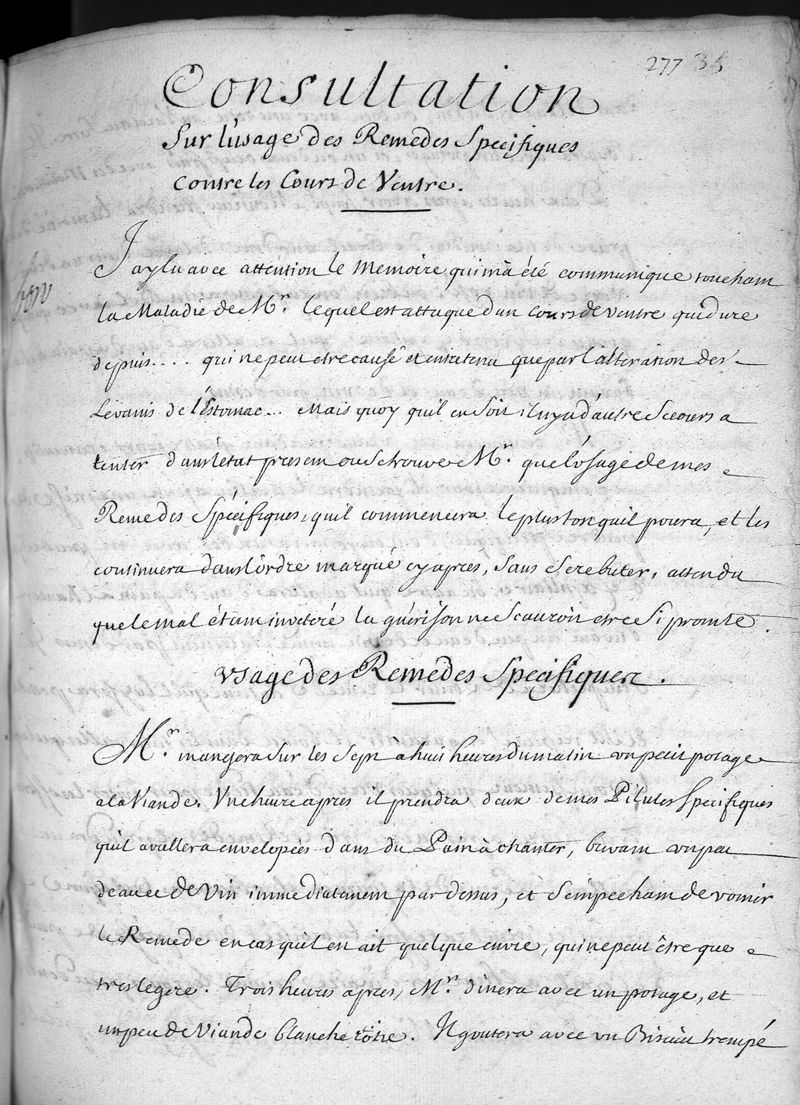 277 35
Consultation
Sur l'usage des Remedes Specifiques
contre les Cours de Ventre.
J'ay lu avec attention le Memoire qui m'a été communiqué toucham
la Maladie de Mr. lequel est attaqué d'un Cours de ventre qui dure
depuis.... qui ne peut etre causé et entretenu que par l'alteration des
Levains de l'Estomac... Mais quoy qu'il en soit il n'y a d'autre secours a
tenter dans l'état present ou se trouve Mr. que l'usage de mes
Remedes Spécifiques, qu'il commencera le plustot qu'il poura, et les
continuera dans l'ordre marqué cy apres, sans se rebuter, attendu
que le mal étant inveteré la guérison ne scauroit etre si promte.
Usage des Remedes Specifiques.
Mr. mangera sur les sept a huit heures du matin un petit potage
a la Viande. Une heure apres il prendra deux de mes Pilules Specifiques
qu'il avallera envelopées dans du Pain à chanter, buvant un peu
d'eau et de Vin immediatement par dessus, et s'empecham de vomir
le Remede en cas qu'il en ait quelque envie, qui ne peut être que
tres legere. Trois heures apres, Mr. dinera avec un potage, et
un peu de Viande blanche rôtie. Il goutera avec un Biscuit trempé